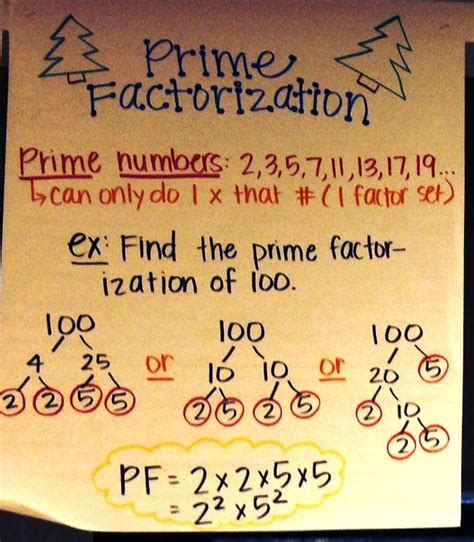 Prime
Factorization
Prime numbers: 2,3,5,7,11,13,17,19...
↳can only do 1 x that # (1 factor set)
ex: Find the prime factor-
ization of 100.
100 100 100
4 25 or 10 10 or 20 5
2 2 5 5 2 5 2 5 2 10
2 5
PF = 2×2×5×5
= 2² × 5²